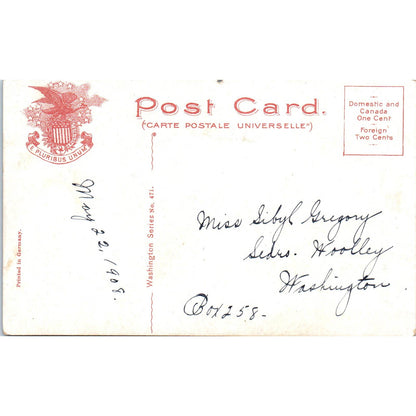 E PLURIBUS UNUM
Post Card.
("CARTE POSTALE UNIVERSELLE")
Domestic and
Canada
One Cent
Foreign
Two Cents
Printed in Germany.
May 22, 1908.
Washington Series No. 471.
Miss Sibyl Gregory
Sedro. Woolley
Washington.
Box 258-